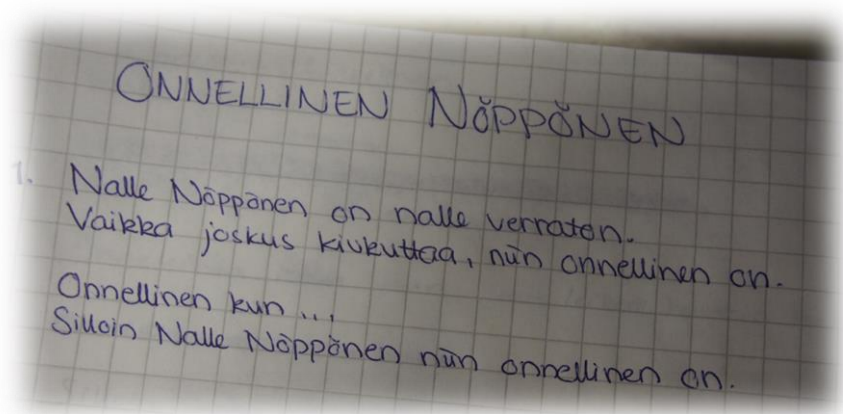 ONNELLINEN NÖPPÖNEN
1. Nalle Nöppönen on nalle verraton.
Vaikka joskus kiukuttaa, niin onnellinen on.
Onnellinen kun...
Silloin Nalle Nöppönen niin onnellinen on.